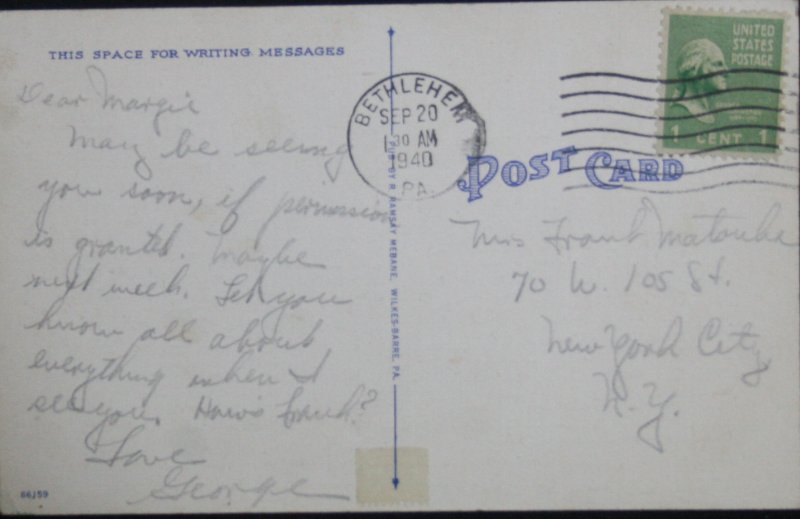 THIS SPACE FOR WRITING MESSAGES
Dear Margie
May be seeing
you soon, if permission
is granted. Maybe
next week. Let you
know all about
everything when I
see you. How's Frank?
Love
George
66J59
PUB. BY R. RAMSAY MEBANE, WILKES-BARRE, PA.
BETHLEHEM
SEP 20
30 AM
1940
PA.
UNITED
STATES
POSTAGE
1 CENT 1
POST CARD
Mrs Frank
70 W. 105 St.
New York City
N.Y.